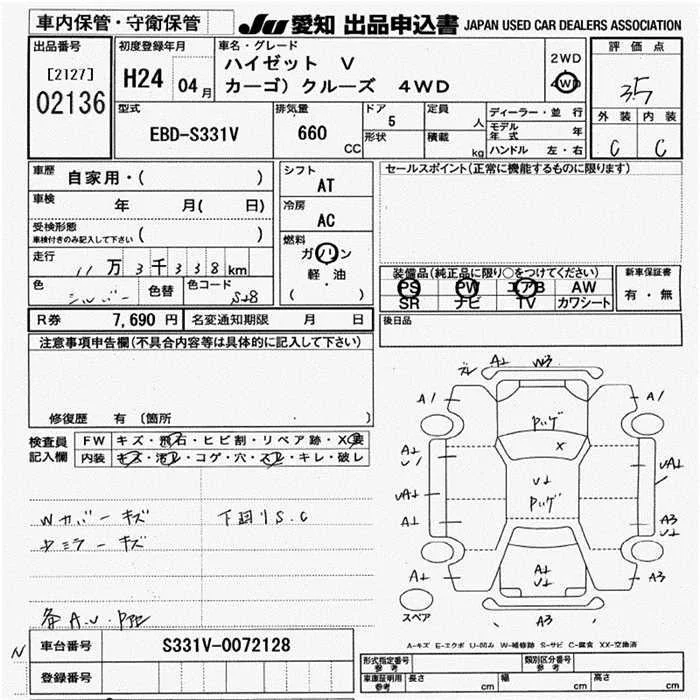 車内保管・守衛保管
JU 愛知 出品申込書 JAPAN USED CAR DEALERS ASSOCIATION
出品番号
[2127]
02136
初度登録年月
H24 04月
車名・グレード
ハイゼット V
カーゴ) クルーズ 4WD
2WD
4WD
評価点
3.5
外装 内装
C C
型式
EBD-S331V
排気量
660
CC
ドア
5
形状
定員
人
積載
kg
ディーラー・並行
モデル年式 年
ハンドル 左・右
車歴 自家用・( )
車検 年 月( 日)
受検形態
車検付きのみ記入して下さい ( )
走行 11万3千338km
色 シルバー 色替 色コード S28
シフト
AT
冷房
AC
燃料
ガソリン
軽・油
( )
セールスポイント(正常に機能するものに限ります)
装備品(純正品に限り○をつけてください)
PS PW エアB AW
SR ナビ TV カワシート
新車保証書
有・無
R券 7,690円 名変通知期限 月 日
後日品
注意事項申告欄(不具合内容等は具体的に記入して下さい)
修復歴 有 〔箇所 〕
検査員記入欄
FW キズ・飛石・ヒビ割・リペア跡・X要
内装 キズ・汚れ・コゲ・穴・スレ・キレ・破レ
Wカバーキズ
下回りS.C
ミラーキズ
各A.U.
A1 W3
A1 A1
X
A3
A3
A3
スペア
A-キズ E-エクボ U-凹み W-補修跡 S-サビ C-腐食 XX-交換済
N
車台番号 S331V-0072128
登録番号
形式指定番号
参考
類別区分番号
参考
車庫証明用
参考
長さ cm 幅 cm 高さ cm